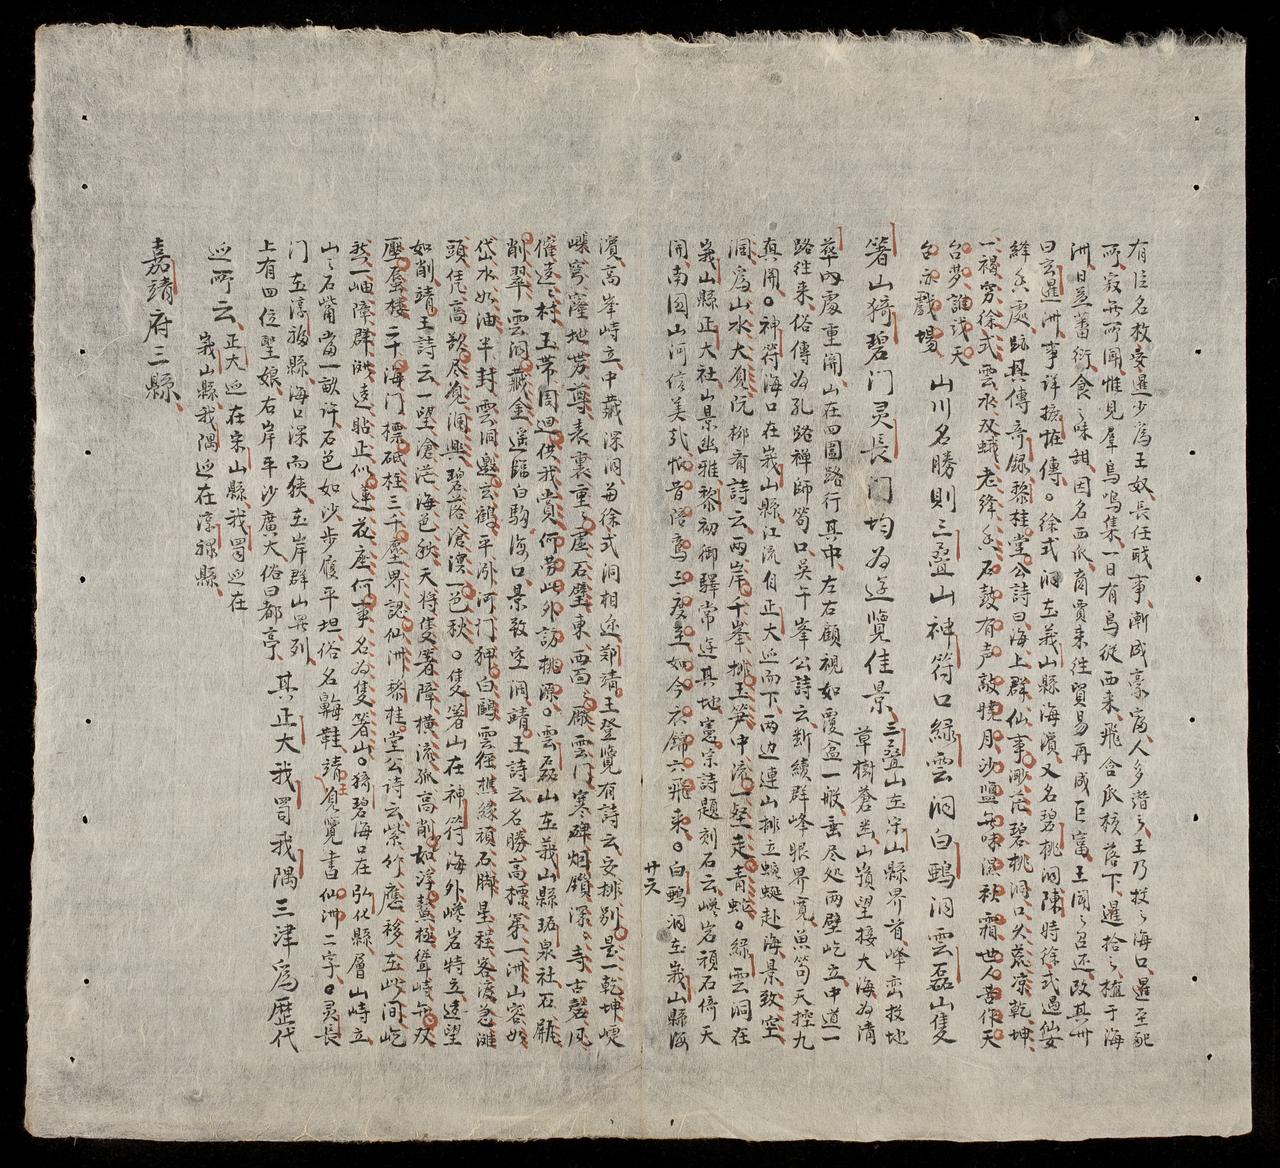 有臣名枚安暹少為王奴長任戢事漸成豪富人多譖之王乃投之海口暹至範
所寂無所聞惟見羣烏鳴集一日有烏從西來飛含瓜核落下暹拾之植于海
洲日益蕃衍食之味甜因名西瓜商賈来往貿易再成巨富王聞之召还改其州
曰玄暹洲事详摭怪傳。徐式洞在峩山縣海濆又名碧桃洞陳時徐式遇仙女
絳香處跡具傳奇録黎桂堂公詩曰海上群仙事渺茫碧桃洞口久荒凉乾坤
一褐窮徐式雲水双蛾老絳香石鼓有声敲曉月沙盬無味濕秋霜世人苦作天
台夢誰识天
台亦戲場
山川名勝則三叠山神符口綠雲洞白鵶洞雲磊山隻
箸山猗碧门灵長门均為逰覽佳景
三叠山在宋山縣界首峰巒接地
草樹蒼 山嶺望接大海為清
華内處重関山在四圍路行其中左右顧視如覆盆一般岳尽処两壁屹立中道一
路往来俗傳為孔路禅師笱口吴午峯公詩云断續群峰眼界寛魚笱天控九
真関。神符海口在峩山縣江流自正大迆而下两边連山排立蜿蜒赴海景致空
濶為山水大观阮栁斎詩云两岸千峯排玉笋中流一壑走青蛇。綠雲洞在
峩山縣正大社山景幽雅黎初御驛常逰其地憲宗詩題刻石云嶙岩頑石倚天
開南國山河信美 昔陪鸞三度至如今衣錦六飛来。白鵶洞在峩山縣海
廿六
濆高峯峙立中藏深洞與徐式洞相近鄭靖王登覽有詩云安排别是一乾坤
嵘穹窿地芳尊表裏重之虚石壁東西面之厰雲门寒碑烟鎖深寺古磬风
催遠之村玉帶周迴供我賞何劳此外訪桃源。雲磊山在峩山縣珸泉社石屏
削翠雲洞藏金遥臨白駒海口景致空濶靖王詩云名勝高標第一洲山容如
岱水如油半封雲洞邀玄鶴平 河门狎白鷗雲径樵緣頑石脚星程客渡急灘
頭凭高歆尽观瀾興碧落滄溟一色秋。隻箸山在神符海外嶙岩特立遠望
如削靖王詩云一望滄茫海色秋天将隻箸障横流孤高削如浮鰲極聳峙無双
壓蜃楼二十海门標砥柱三千塵界認仙洲黎桂堂公詩云紫竹應移在此间屹
然一岫障群洪遠貼止似蓮花座何事名為隻箸山。猗碧海口在弘化縣層山峙立
山之石觜當一畝许石色如沙步履平坦俗名 鞋靖王观覽書仙洲二字。灵長
门在淳祿縣海口深而狭左岸群山並列
上有四位聖娘右岸平沙廣大俗曰都亭
其正大我罱我隅三津為歴代
迆所云
正大迆在宋山縣我罱迆在
峩山縣我隅迆在淳禄縣
嘉靖府三縣